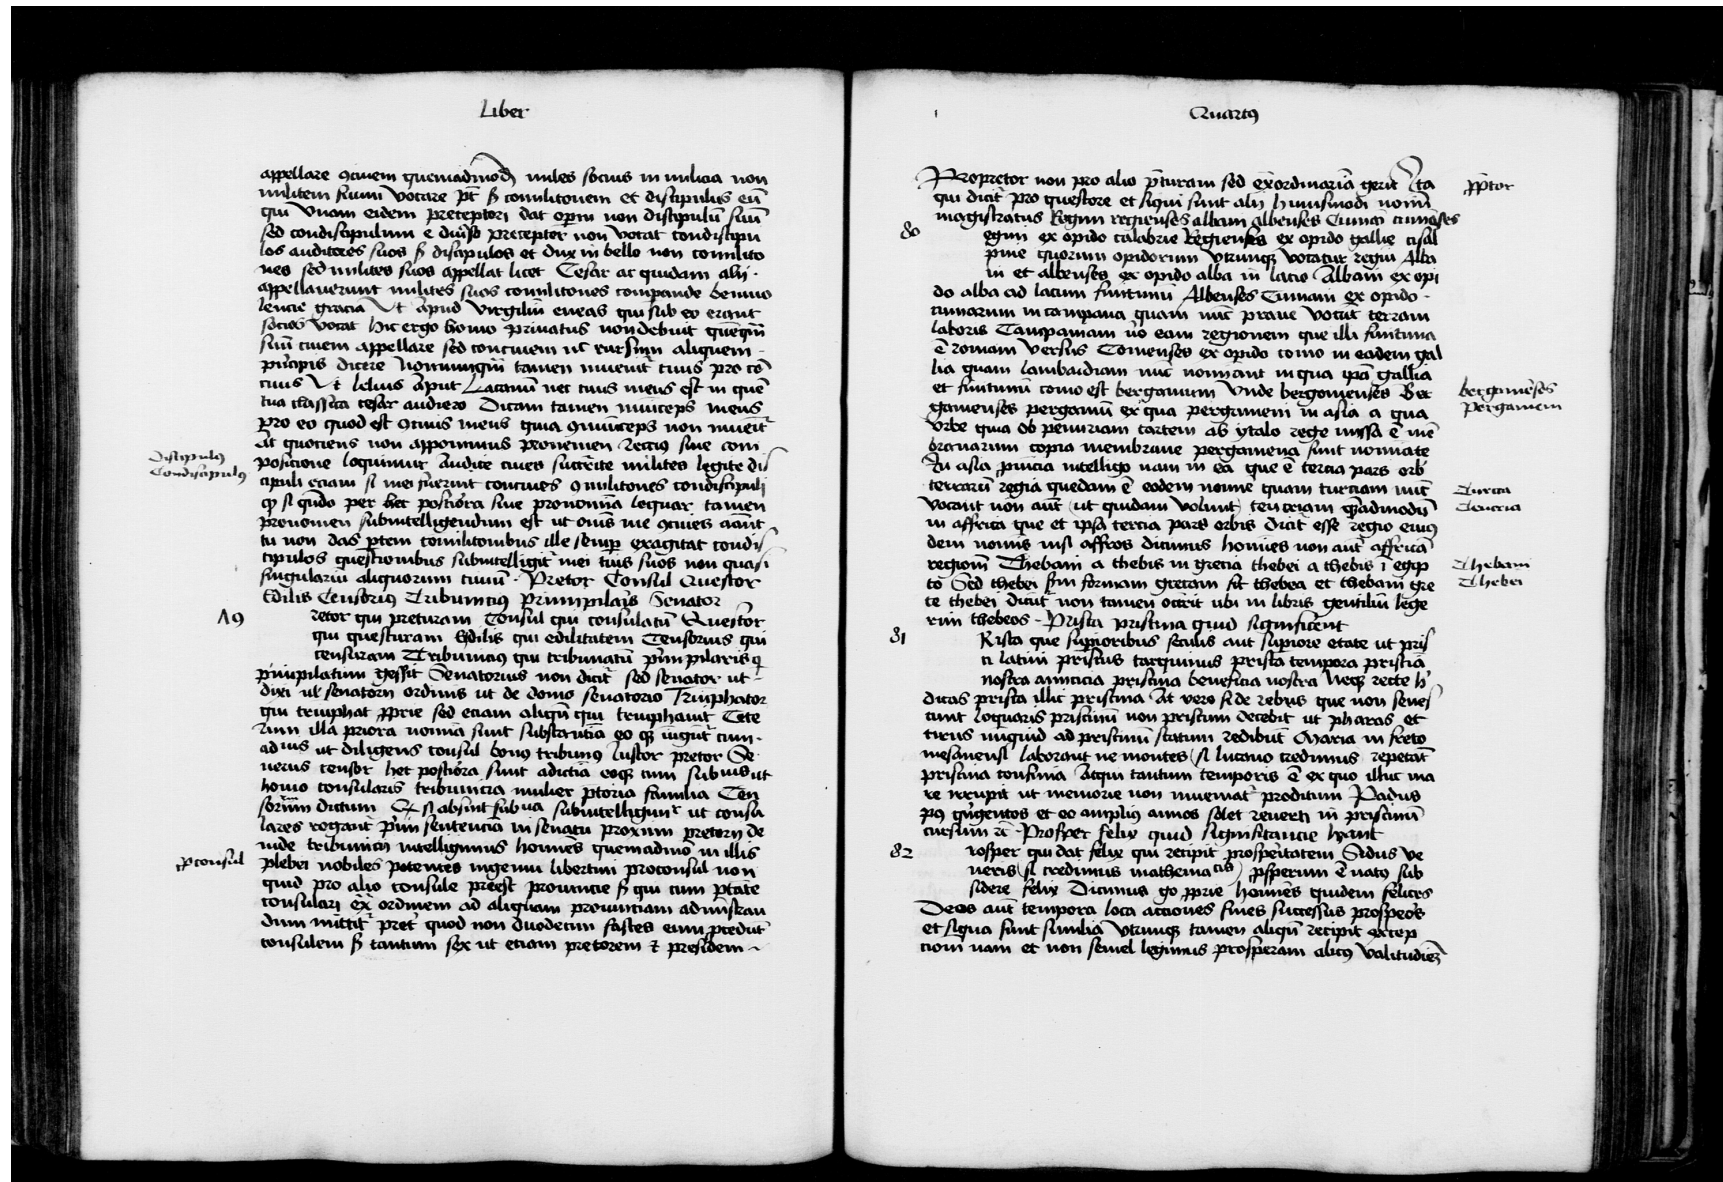 Liber
appellare ꝯciuem quemadmodū miles socius in milicia non
militem suum vocare pt̄ sꝫ cōmilitonem et discipulus eū
qui vnam eidem preceptori dat operā non discipulū suū
sed condiscipulum e diuerso preceptor non vocat condiscipu
los auditores suos sꝫ discipulos et dux in bello non comilito
nes sed milites suos appellat licet Cesar ac quidam alij
appellauerunt milites suos comilitones comparande beniuo
lencie gracia Vt apud virgiliū eneas qui sub eo erant
socios vocat hic ergo homo priuatus non debuit quēqꝫ
suū ciuem appellare sed conciuem nec rursum aliquem
pricipis dicere Nonnunqꝫ tamen inuenit̄ ciuis pro cō
ciuis Vt lelius aput Lucanū nec ciuis meus est in quē
tua classica cesar audiero Dicam tamen municeps meus
pro eo quod est ꝯciuis meus quia ꝯmuniceps non inueit̄
At quociens non apponimus pronomen rectius sine com
posicione loquimur Audite ciues succrite milites legite dis
cipuli eciam si mei fuerint conciues ꝯmilitones condiscipuli
qꝫ si qn̄do per hec posteriora siue pronomina loquar tamen
pronomen subintelligendum est ut omīs me ꝯciues amāt
tu non das p̄tem comilitonibus ille semp̄ exagitat condis
cipulos questionibus subintelligit̄ mei tuis suos non quasi
singulariū aliquorum ciuiū Pretor Consul Questor
Edilis Censorius Tribunicius Primipilaris Senator
retor qui preturam Consul qui consulatū Questor
qui questuram Edilis qui edilitatem Censorius qui
censuram Tribunicius qui tribunatū primpilaris q̄
primipilatum gessit Senatorius non dicit̄ sed senator ut
dixi ul̄ senatorij ordinis ut de domo senatorio Triumphator
qui triumphat ꝓprie sed eciam aliqn̄ qui triumphauit Cete
rum illa priora nomina sunt substantiua eo qꝫ iūgūt̄ cum
adiūs ut diligens consul bonus tribunus Iustor pretor Se
uerus censor hec posteriora sunt adiectia eoqꝫ cum subuis ut
homo consularis tribunicia mulier ꝑtoria familia Cen
sorium dictum Qꝫ si absint subua subintelligunt̄ ut consu
lares rogant̄ prim sentencia in senatu proximi pretorij de
inde tribunicij intelligimus homines quemadmō in illis
plebei nobiles potentes ingenui libertini proconsul non
quid pro alio consule preest prouincie sꝫ qui cum ptāte
consulari ex̄ ordinem ad aliquam prouinciam administran
dum mittit̄ pret̄ quod non duodecim fasces eum p̄cedūt
consulem sꝫ tantum sex ut eciam pretorem ꝛ presidem
Discipulus
Condiscipulus
Λ9
ꝓconsul
Quartus
Propretor non pro alio p̄turam sed ex̄ordinariā gerit Ita
qui dicit̄ pro questore et siqui sunt alij huiusmodi nomī
magistratus Regini regienses albani albenses Cumani cumēses
egini ex opido calabrie Regienses ex opido gallie cisal
pine quorum opidorum vtrunqꝫ vocatur regiū Alba
ni et albenses ex opido alba in lacio Albani ex opi
do alba ad lacum funcinū Albenses Cumani ex opido
cumarum in campana quam nūc praue vocāt terram
laboris Campaniam uō eam regionem que illi funcima
ē romam versus Comenses ex opido como in eadem gal
lia quam lambardiam nūc nominant in qua ipā gallia
et funtimū como est bergamum Vnde bergomenses Ber
gamenses pergamū ex qua pergameni in asia a qua
vrbe quia ob penuriam cartem ab ytalo rege missa ē mē
branarum copia membrane pergamena sunt nominate
In asia ꝓuincia intelligo nam in ea que ē tercia pars orb
terrarū regia quedam ē eodem nomine quam turciam nūc
vocant non aūt (ut quidam volunt) teucriam q̄admodū
in affrica que et ipsa tercia pars orbis dicit̄ esse regio eius
dem nominis nisi affros dicimus homines non aut̄ affricā
regionē Thebani a thebis in grecia thebei a thebis ī egip
to Sed thebei scdm formam grecam sit thebea et thebani gre
ce thebei dicūt̄ non tamen occrit ubi in libris gentiliū lege
rim thebeos Prisca pristina quid significent
Risca que superioribus seculis aut superiore etate ut pris
ci latini priscus tarquinius prisca tempora pristia
nostra amicicia pristina beneficia nostra Neqꝫ recte hꝫ
dicas prisca illic pristina At vero si de rebus que non senes
cunt loquaris pristinū non priscum decebit ut pharos et
tirus nunquid ad pristinū statum redibūt Maria in freto
mesanensi laborant ne montes (si lucano credimus repetāt
pristina confinia Atqui tantum temporis ē ex quo illuc ma
re irrupit ut memorie non inueniat̄ proditum Padus
pꝰ q̄ngentos et eo amplius annos solet reuerti in pristinū
cursum ⁊c̄ Prosper felix quid significancie habāt
rosper qui dat felix qui recipit prosperitatem Sidus ve
neris (si credimus mathematicis) ꝓsperum ē natus sub
sidere felix Dicimus go ꝓprie homines quidem felices
Deos aūt tempora loca acciones fines successus prosperos
et siqua sunt similia vtrunqꝫ tamen aliqn̄ recipit excep
cionē nam et non semel legimus prosperam alicuius valitudinē
ꝓp̄tor
80
bergamēses
pergameni
Turcia
Teucria
Thebani
Thebei
81
82